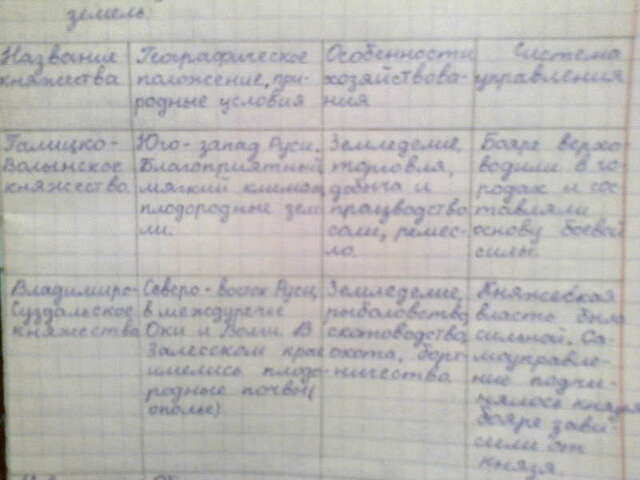 земель.
Название
княжества
Географическое
положение, при-
родные условия
Особенности
хозяйствова-
ния
Система
управления
Галицко-
Волынское
княжество.
Юго-запад Руси.
Благоприятный
мягкий климат,
плодородные зем
ли.
Земледелие,
торговля,
добыча и
працводство
соли, ремес-
ло.
Бояре верхо-
водили в го-
родах и сос-
тавляли
основу боевой
силы.
Владимиро-
Суздальское
княжество
Северо-восток Руси,
в междуречье
Оки и Волги. В
Залесском крае
имелись плодо-
родные почвы(
ополье)
Земледелие,
рыболовство,
скотоводство,
охота, борт-
ничество.
Княжеская
власть была
сильной. Са-
моуправле-
ние подчи-
нялось князю,
бояре зави
сили от
князя.